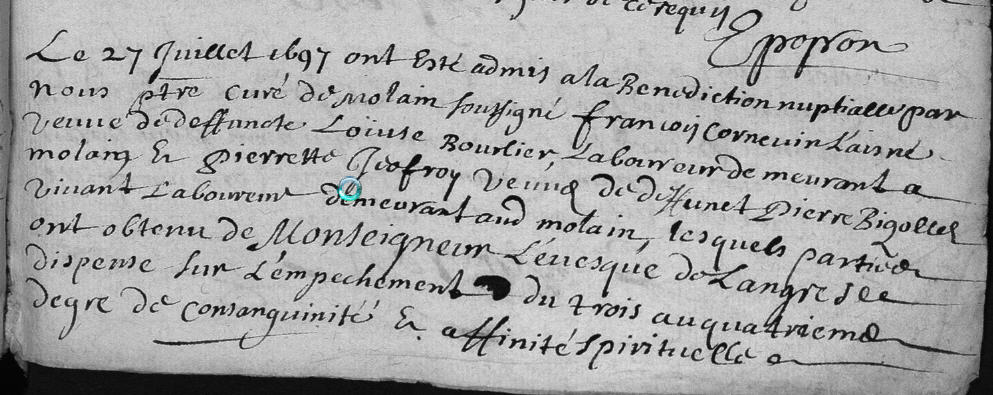 de Crequy
Epopron
Le 27 Juillet 1697 ont esté admis a la Benediction nuptialle par
Nous ptre curé de Molain soussigné francois Cornevin Laisné
veuve de deffuncte Loiuse Bourlier, Laboureur demeurant a
molain et pierrette Jeofroy veuve de deffunct Pierre Bigollet
vivant Laboureur demeurant aud molain, lesquels parties
ont obtenu de Monseigneur L'evesque de Langres
dispense sur L'empechement du trois au quatrieme
degre de consanguinité et affinité spirituelle